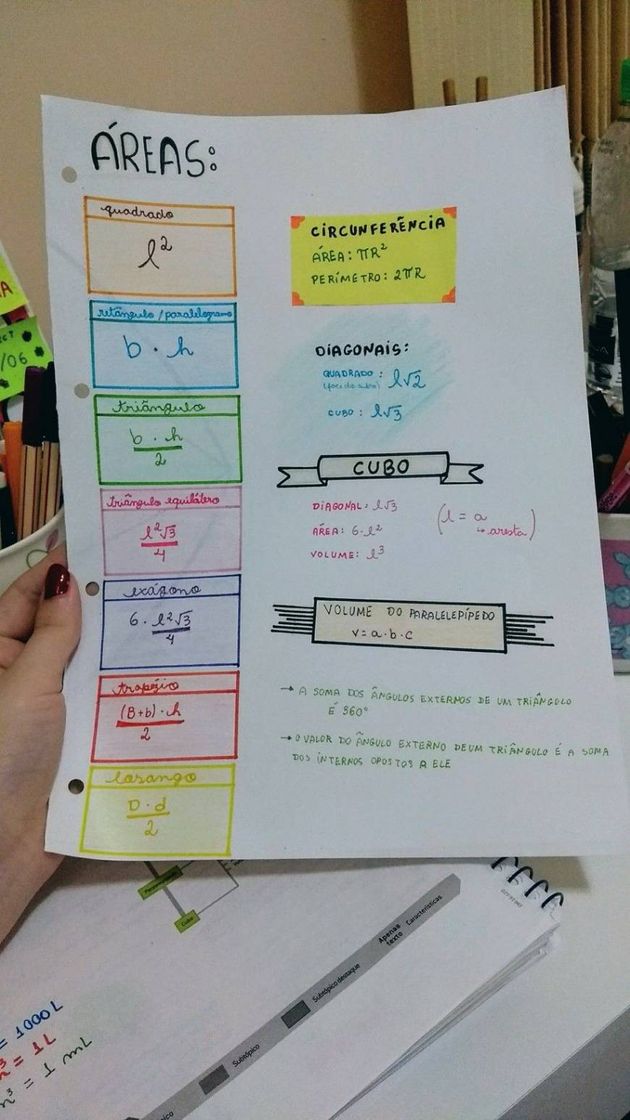 ÁREAS:
quadrado
l²
retângulo/paralelogramo
b · h
triângulo
b · h
2
triângulo equilátero
l²√3
4
exágono
6 · l²√3
4
trapézio
(B+b) · h
2
losango
D · d
2
CIRCUNFERÊNCIA
ÁREA: πR²
PERÍMETRO: 2πR
DIAGONAIS:
QUADRADO: l√2
(face do cubo)
CUBO: l√3
CUBO
DIAGONAL: l√3
ÁREA: 6·l²
VOLUME: l³
(l = a
↳ aresta)
VOLUME DO PARALELEPÍPEDO
V = a·b·c
→ A SOMA DOS ÂNGULOS EXTERNOS DE UM TRIÂNGULO
É 360°
→ O VALOR DO ÂNGULO EXTERNO DE UM TRIÂNGULO É A SOMA
DOS INTERNOS OPOSTOS A ELE
A
/06
= 1000L
³ = 1L
³ = 1 mL
Cubo
Subtópico
Subtópico destaque
Apenas
texto
Características